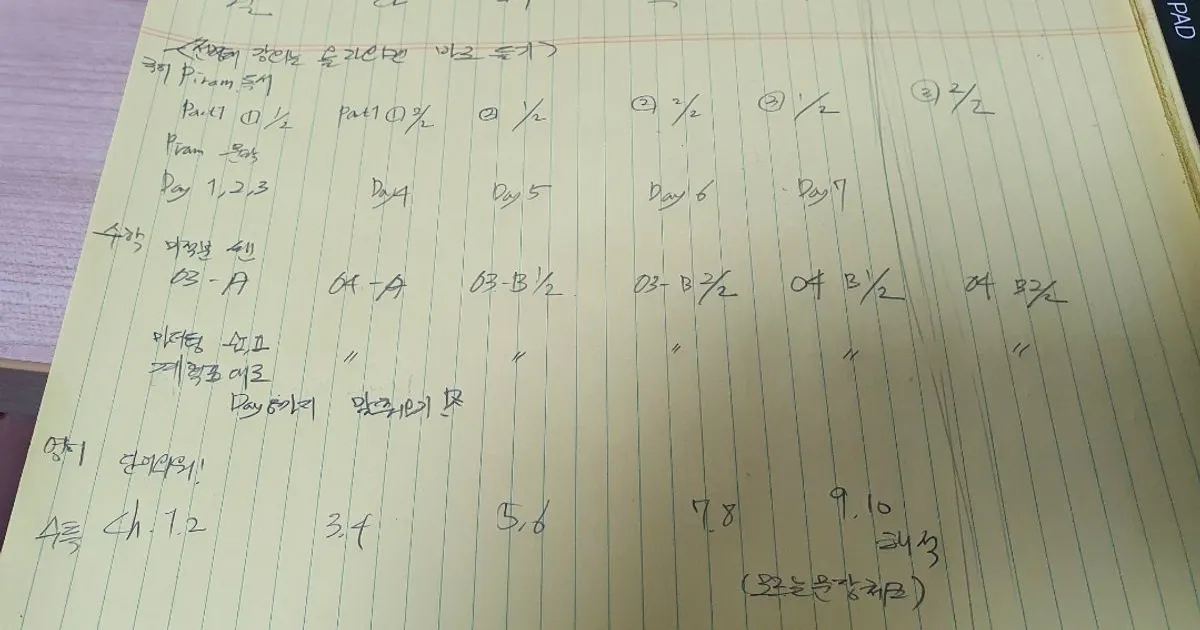 강의는 올라오면 바로 듣기>
국어 Piram 독서
Part1 ① 1/2 Part1 ① 2/2 ② 1/2 ② 2/2 ③ 1/2 ③ 2/2
Piram 문학
Day 1,2,3 Day4 Day5 Day 6 Day 7
수학 미적분 쎈
03-A 04-A 03-B 1/2 03-B 2/2 04 B 1/2 04 B 2/2
수I,II 〃 〃 〃 〃 〃
계획표대로
Day 까지
영어 단어외워!
수특 Ch.1.2 3,4 5,6 7.8 9.10
해석
(모르는문장체크)